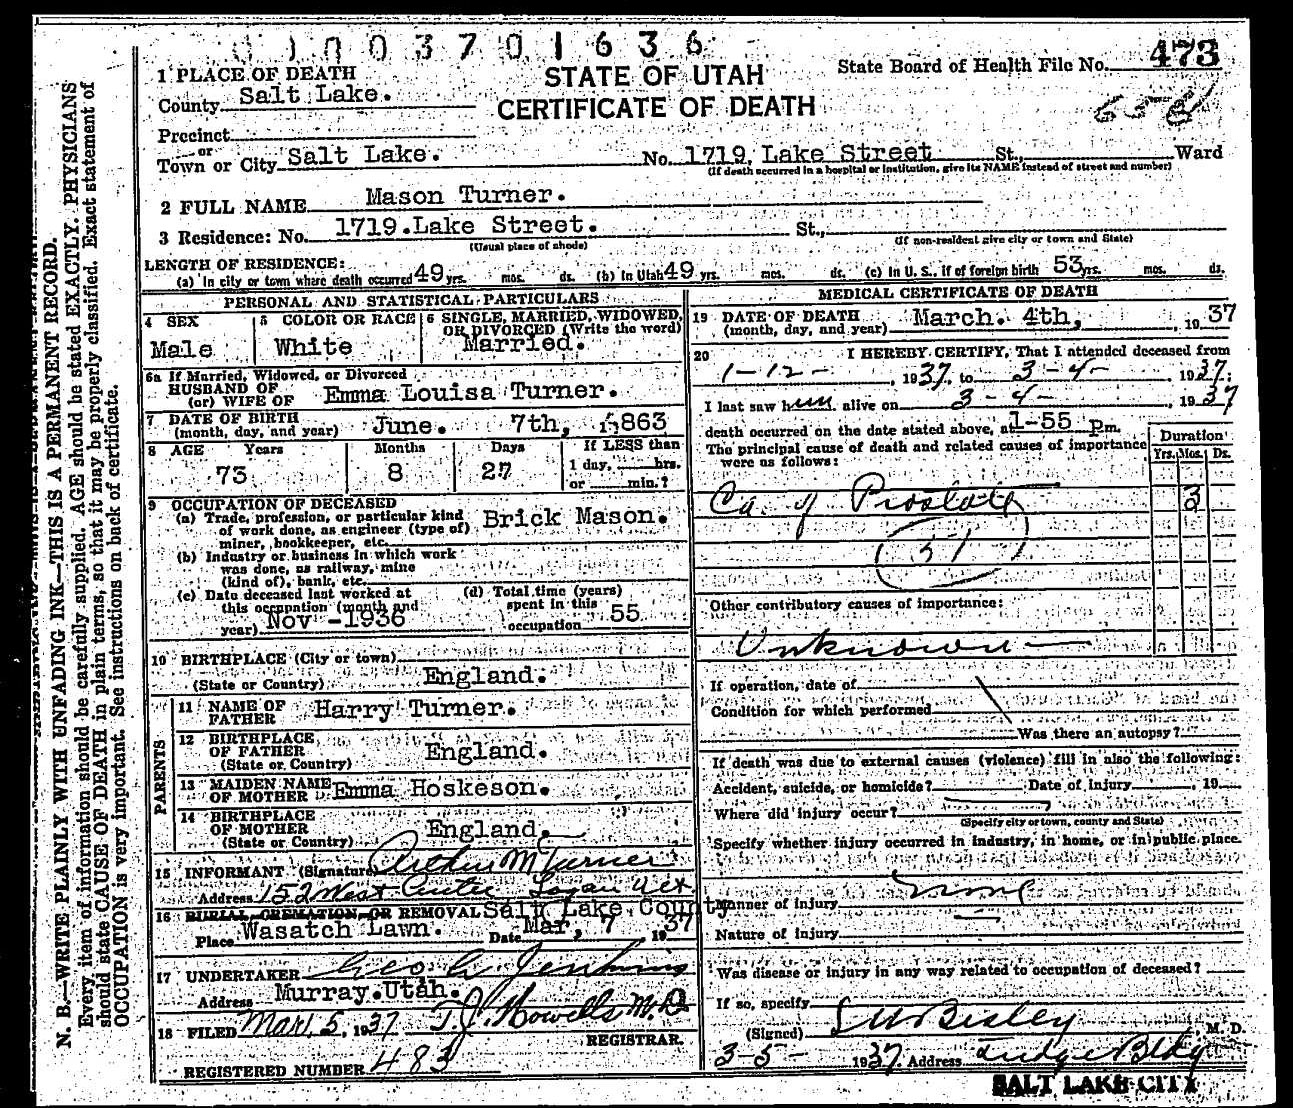 370 1636
1 PLACE OF DEATH
STATE OF UTAH
CERTIFICATE OF DEATH
State Board of Health File No. 473
County Salt Lake.
Precinct
or
Town or City Salt Lake. No. 1719 Lake Street St., Ward
(If death occurred in a hospital or institution, give its NAME instead of street and number)
2 FULL NAME Mason Turner.
3 Residence: No. 1719.Lake Street. St.,
(Usual place of abode) (If non-resident give city or town and State)
LENGTH OF RESIDENCE:
(a) In city or town where death occurred 49 yrs. mos. ds. (b) In Utah 49 yrs. mos. ds. (c) In U. S., if of foreign birth 53 yrs. mos. ds.
PERSONAL AND STATISTICAL PARTICULARS
4 SEX 5 COLOR OR RACE 6 SINGLE, MARRIED, WIDOWED, OR DIVORCED (Write the word)
Male White Married.
6a If Married, Widowed, or Divorced
HUSBAND OF
(or) WIFE OF Emma Louisa Turner.
7 DATE OF BIRTH
(month, day, and year) June. 7th, 1863
8 AGE Years Months Days If LESS than
73 8 27 1 day, hrs.
or min.?
9 OCCUPATION OF DECEASED
(a) Trade, profession, or particular kind
of work done, as engineer (type of)
miner, bookkeeper, etc. Brick Mason.
(b) Industry or business in which work
was done, as railway, mine
(kind of), bank, etc.
(c) Date deceased last worked at
this occupation (month and
year) Nov -1936
(d) Total time (years)
spent in this
occupation 55
10 BIRTHPLACE (City or town)
(State or Country) England.
PARENTS
11 NAME OF
FATHER Harry Turner.
12 BIRTHPLACE
OF FATHER
(State or Country) England.
13 MAIDEN NAME
OF MOTHER Emma Hoskeson.
14 BIRTHPLACE
OF MOTHER
(State or Country) England.
15 INFORMANT (Signature) Arthur M Turner
Address 152 West Center Logan Ut
16 BURIAL, CREMATION, OR REMOVAL Salt Lake County
Place Wasatch Lawn. Date Mar, 7 1937
17 UNDERTAKER Geo. A. Jenkins
Address Murray.Utah.
18 FILED Mar. 5, 1937 T. J. Howells M.D
REGISTRAR.
REGISTERED NUMBER 483
MEDICAL CERTIFICATE OF DEATH
19 DATE OF DEATH
(month, day, and year) March. 4th, , 1937
20 I HEREBY CERTIFY, That I attended deceased from
1-12- , 1937, to 3-4- , 1937;
I last saw him alive on 3-4- , 1937
death occurred on the date stated above, at 1-55 pm.
The principal cause of death and related causes of importance
were as follows:
Duration
Yrs. Mos. Ds.
Ca. of Prostate 3
(51)
Other contributory causes of importance:
Unknown
If operation, date of
Condition for which performed
Was there an autopsy?
If death was due to external causes (violence) fill in also the following:
Accident, suicide, or homicide? Date of injury , 19
Where did injury occur?
(Specify city or town, county and State)
Specify whether injury occurred in industry, in home, or in public place.
Manner of injury none
Nature of injury
Was disease or injury in any way related to occupation of deceased?
If so, specify
(Signed) , M. D.
3-5- 1937. Address Judge Bldg
SALT LAKE CITY
N. B.—WRITE PLAINLY WITH UNFADING INK—THIS IS A PERMANENT RECORD.
Every item of information should be carefully supplied. AGE should be stated EXACTLY. PHYSICIANS
should state CAUSE OF DEATH in plain terms, so that it may be properly classified. Exact statement of
OCCUPATION is very important. See instructions on back of certificate.